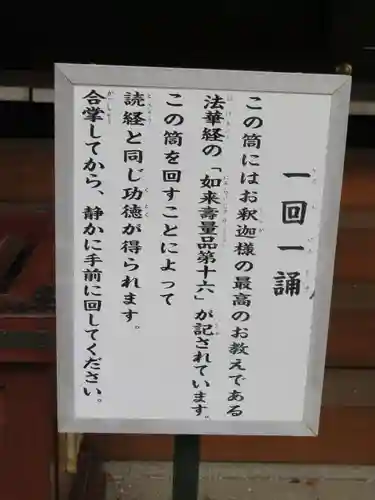 一回一誦
この筒にはお釈迦様の最高のお教えである
法華経の「如来壽量品第十六」が記されています。
この筒を回すことによって
読経と同じ功徳が得られます。
合掌してから、静かに手前に回してください。